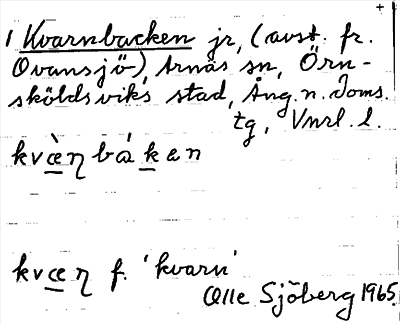 1 Kvarnbacken jr, (avst. fr.
Ovansjö), Arnäs sn, Örn-
sköldsviks stad, Ång. n. doms.
tg, Vnrl. l.
kvæ̀ŋbákan
kvæŋ f. 'kvarn'
Olle Sjöberg 1965.